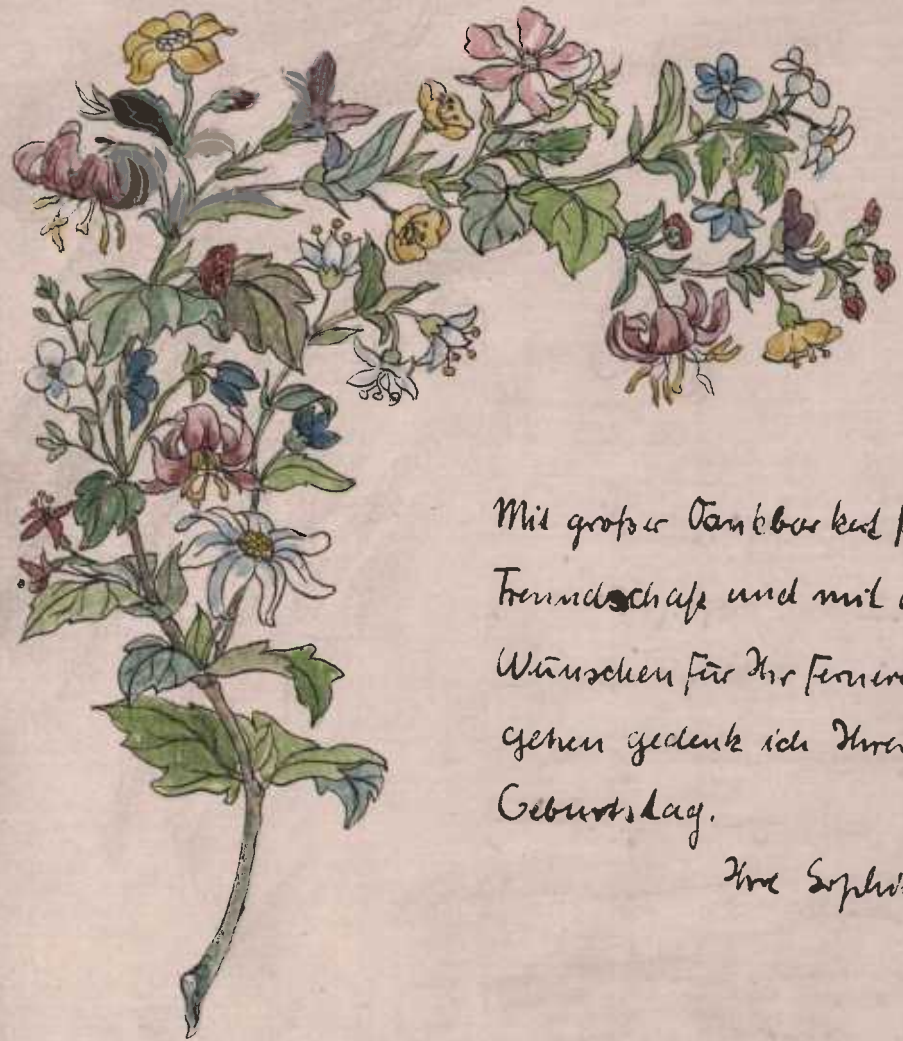 Mit großer Dankbarkeit
Freundschaft und mit
Wünschen für Ihr ferner
gehen gedenk ich Ihre
Geburtstag.
Ihre Sophi